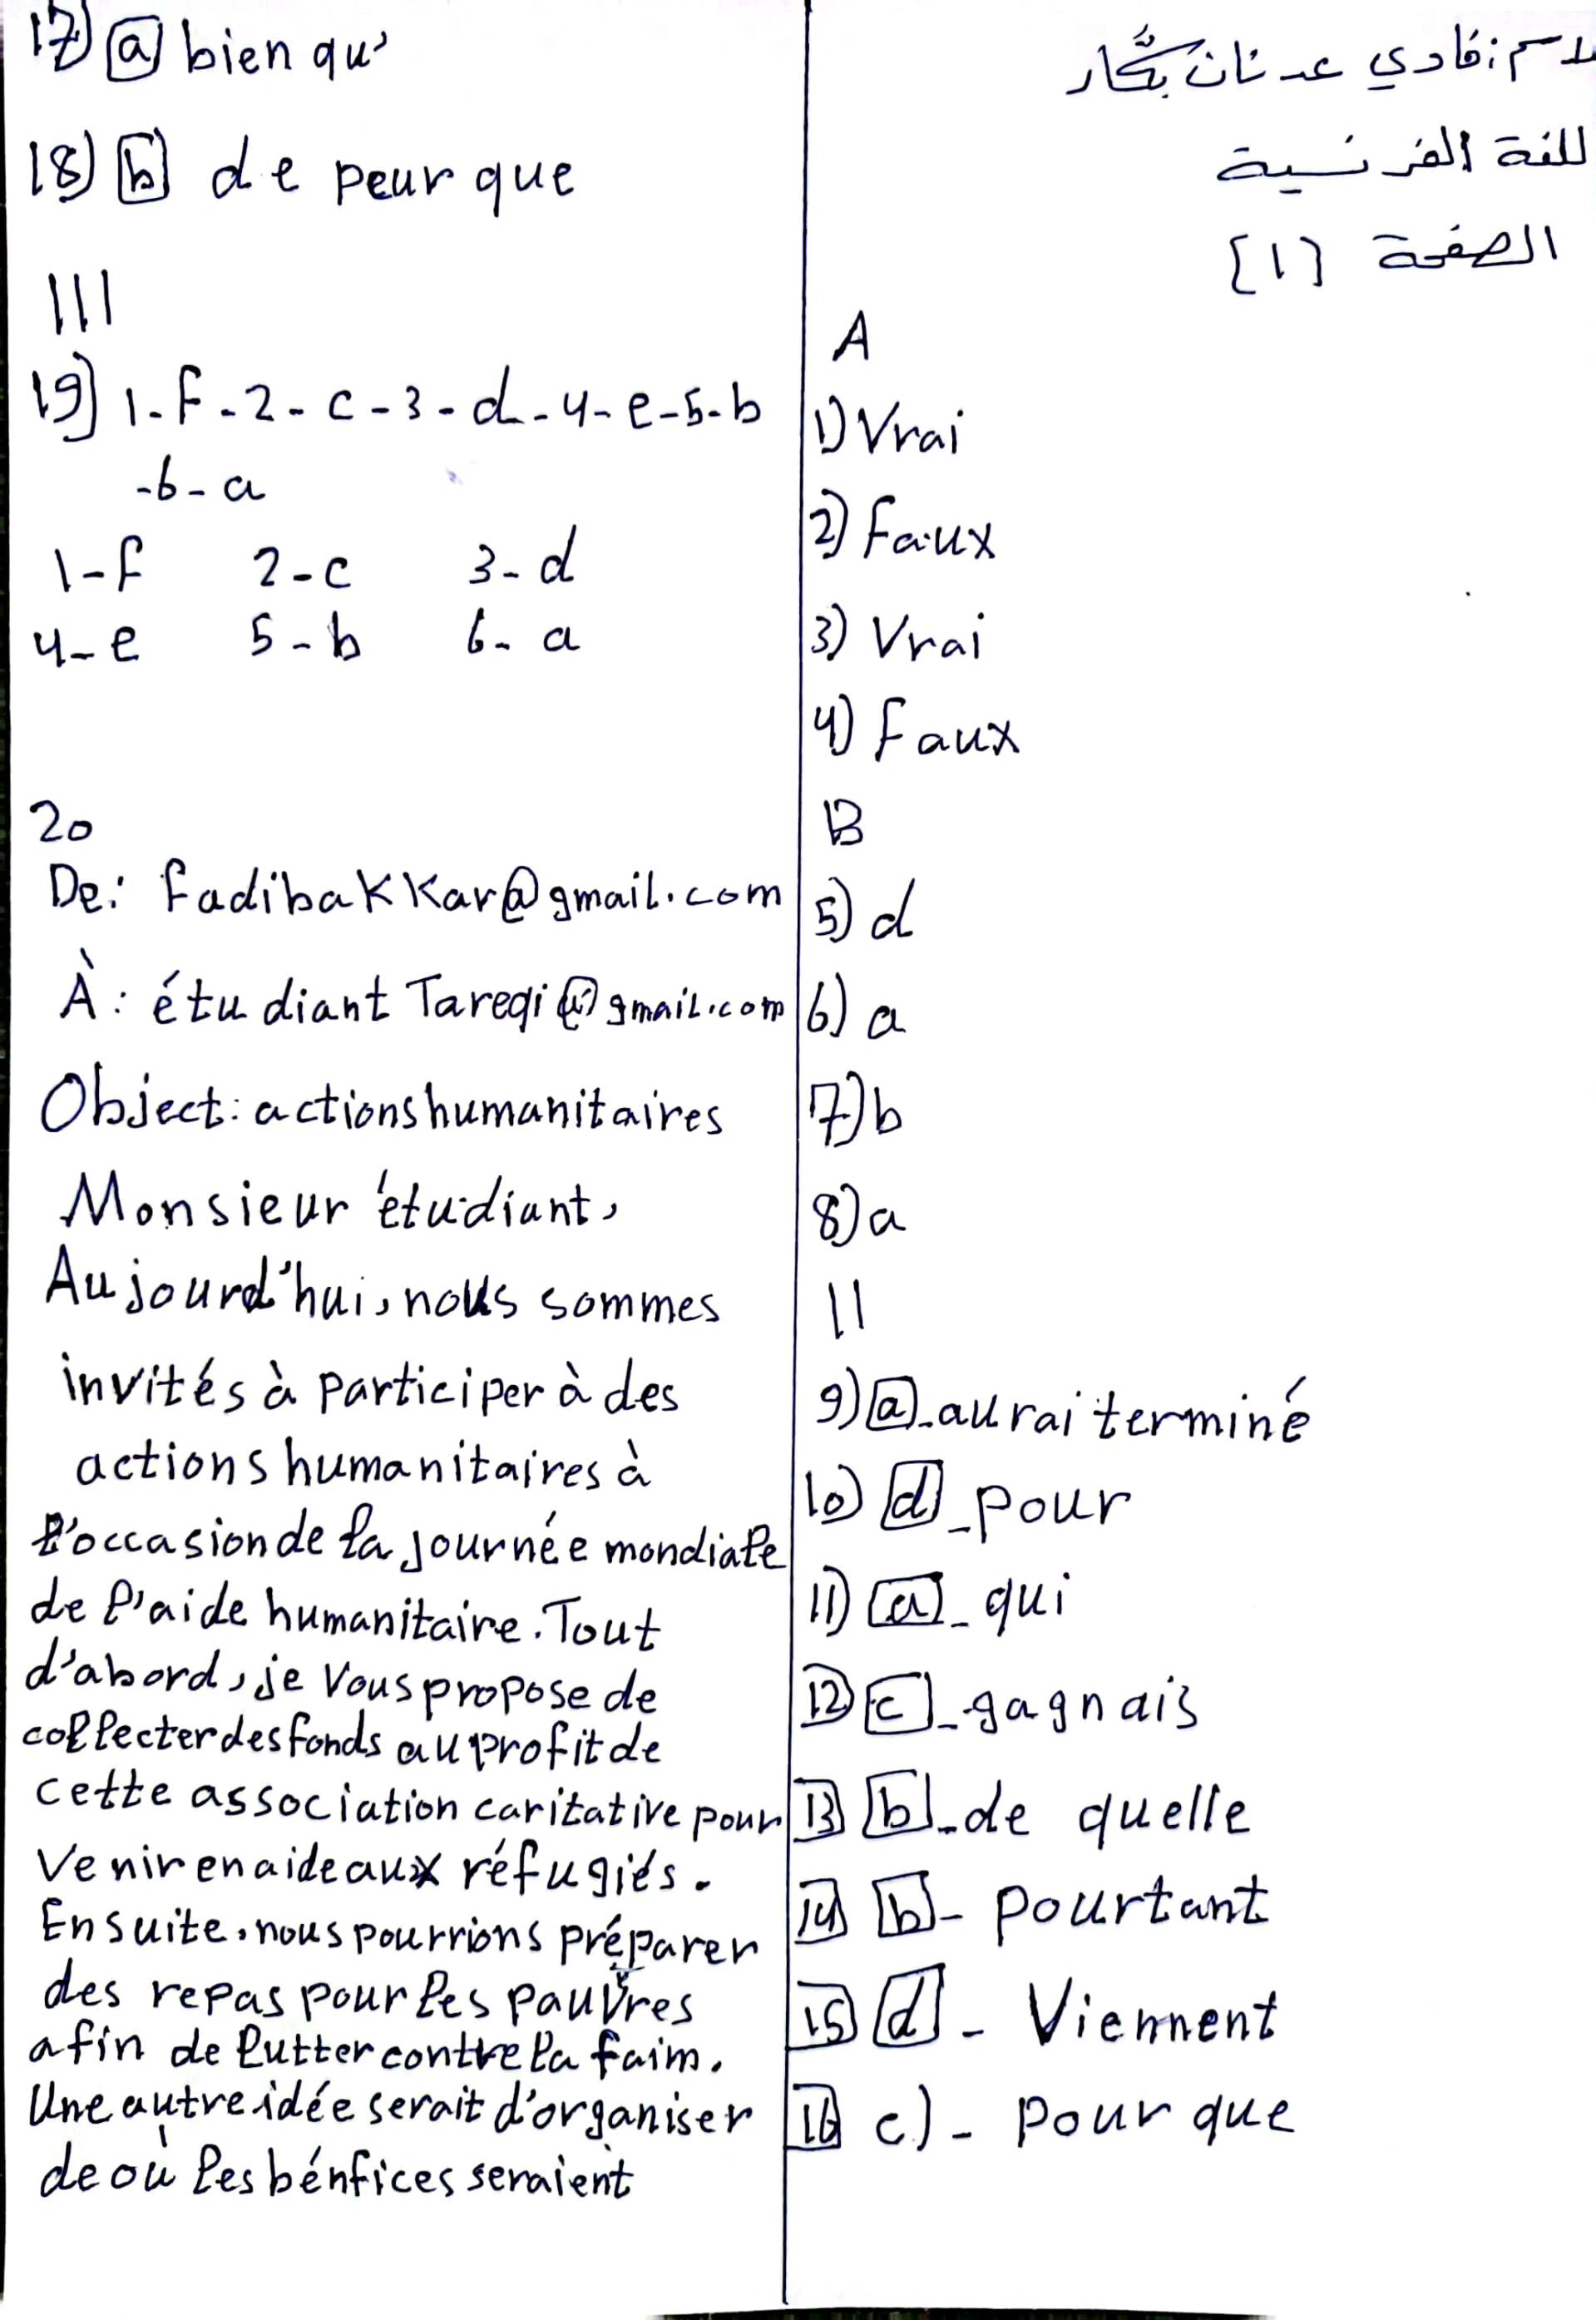 لاسم: فادي عدنان بكَّار
للغة الفرنسية
الصفحة [١]
A
1) Vrai
2) Faux
3) Vrai
4) Faux
B
5) d
6) a
7) b
8) a
II
9) a - aurai terminé
10) d - pour
11) a - qui
12 c - gagnais
13 b - de quelle
14 b - pourtant
15 d - Viennent
16 c) - pour que
17) a bien qu'
18) b de peur que
III
19) 1-f-2-c-3-d-4-e-5-b
-6-a
1-f 2-c 3-d
4-e 5-b 6-a
20
De: fadibakkar@gmail.com
À: étudiant Tareqi@gmail.com
Object: actions humanitaires
Monsieur étudiant,
Aujourd'hui, nous sommes
invités à participer à des
actions humanitaires à
l'occasion de la journée mondiale
de l'aide humanitaire. Tout
d'abord, je vous propose de
collecter des fonds au profit de
cette association caritative pour
venir en aide aux réfugiés.
Ensuite, nous pourrions préparer
des repas pour les pauvres
afin de lutter contre la faim.
Une autre idée serait d'organiser
de où les bénfices seraient